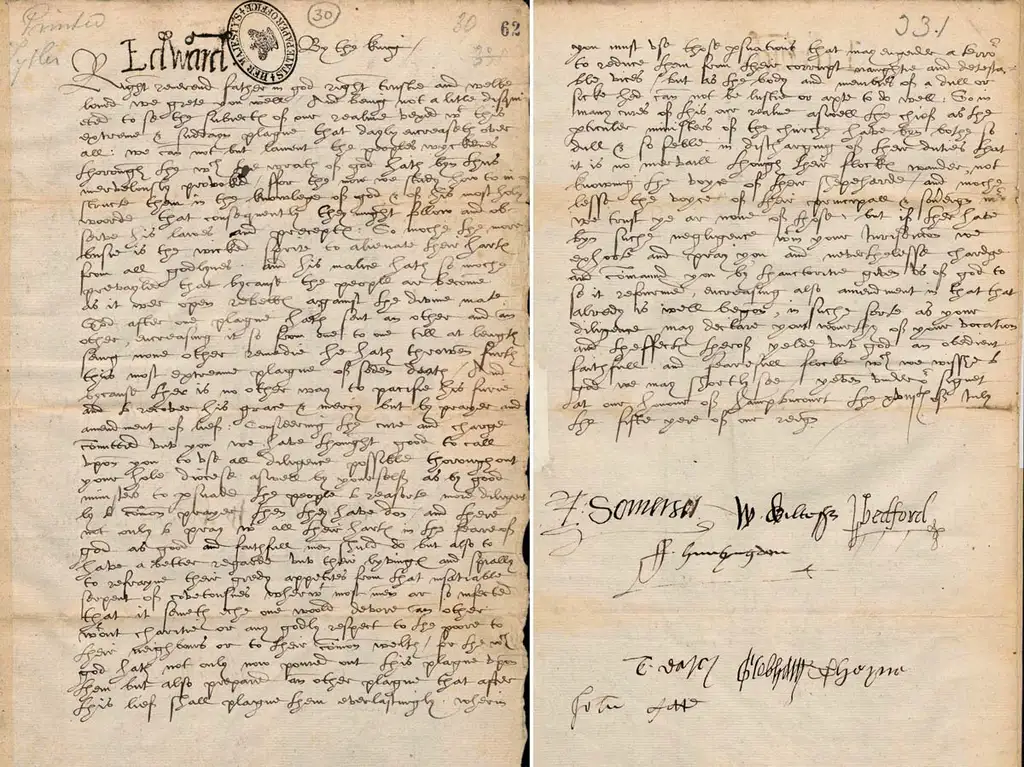 Printed
Tytler
30
30
62
HER MAJESTYS STATE PAPER OFFICE
Edward
By the king
Right reverend father in god right trustie and welbe
loved we grete you well. And being not a litle disqui
eted to se the subjects of our realme vexed wt this
extreme & suddayn plague that dayly encreaseth over
all: we can not but lament the peoples wyckednes
thorough the wch the wrath of god hath byn thus
mervelously provoked. ffor the more we study how to in
structe them in the knowledge of god & of his most holy
woorde that consequently they might follow and ob
serve his lawes and precepts: So moche the more
busie is the wicked sprite to alienate their harts
from all godlynes. And his malice hath so moche
prevayled that bycause the people are become
as it wer open rebells against the divine mate.
God after one plague hath sent an other and an
other, encreasing it so from one to one till at length
seing none other remedie he hath throwen furth
this most extreme plague of soden deth. And
bycause ther is no other way to pacifie his furie
and to recover his grace & mercy but by prayer and
amendment of lief. Considering the cure and charge
committed unto you we have thought good to call
upon you to use all diligence possible thoroughout
your hole diocese aswell by yourself as by good
ministres to persuade the people to resorte more diligently
to comon prayer then they have don, and there
not only to pray wt all their harts in the feare of
god as good and faithfull men shuld do but also to
have a better regarde unto their lyvings and specially
to refrayne their gredy appetites from that insatiable
serpent of covetousnes wherwt most men are so infected
that it semeth eche one woold devore an other
wtout charitie or any godly respect to the poore to
their neighbours or to their comon welth, for the wch
god hath not only now poured out this plague upon
them but also prepared an other plague that after
this lief shall plague them everlastingly. wherin
331
you must use those persuations that may engender a terror
to reduce them from their corrupt naughtie and detesta
ble vices. but as the body and membres of a dull or
sicke hed can not be lustie or apte to do well: So in
many cures of this our realme aswell the chief as the
particuler ministers of the churche have byn bothe so
dull & so feble in discharging of their duties that
it is no mervaill though their flocks wander, not
knowing the voyce of their shepeharde, and moche
lesse the voyce of their principall & soverayn
we trust ye are none of those. but if ther have
byn suche negligence wtin your Jurisdicion we
exhorte and pray you and nevertheless chardge
and comand you by thauctoritie geven us of god to
se it refourmed, encreasing also amendment in that that
already is well begon, in suche sorte as your
diligence may declare your of your vocation
and theffects herof yelde unto god an obedient
faithfull and fearefull flocke wch we wisshe to
god we may shortly see. yeven under our signet
at our honour of hamptoncourt the xviijth of July
the fifte yere of our reign
E. Somerset W. Wiltesh J Bedford
F. Huntyngdon
T. Darcy G Cobham T Cheyne
John Gate